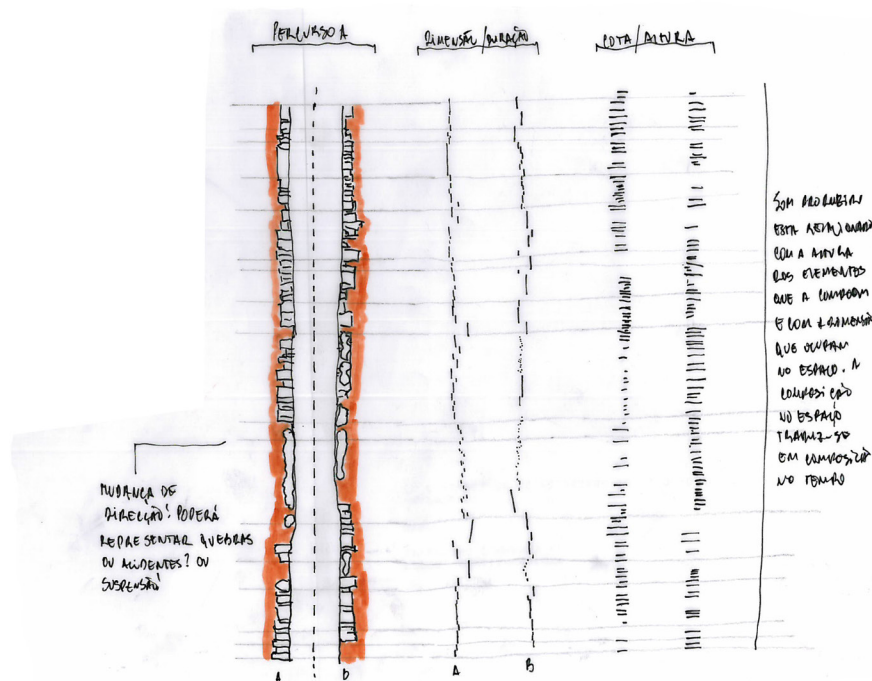 PERCURSO A
DIMENSÃO/DURAÇÃO
COTA/ALTURA
SOM PRODUZIDO
ESTÁ RELACIONADO
COM A ALTURA
DOS ELEMENTOS
QUE A COMPÕEM
E COM A DIMENSÃO
QUE OCUPAM
NO ESPAÇO. A
COMPOSIÇÃO
NO ESPAÇO
TRADUZ-SE
EM COMPOSIÇÃO
NO TEMPO
MUDANÇA DE
DIRECÇÃO! PODERÁ
REPRESENTAR QUEBRAS
OU ACIDENTES? OU
SUSPENSÃO
A
B
A
B